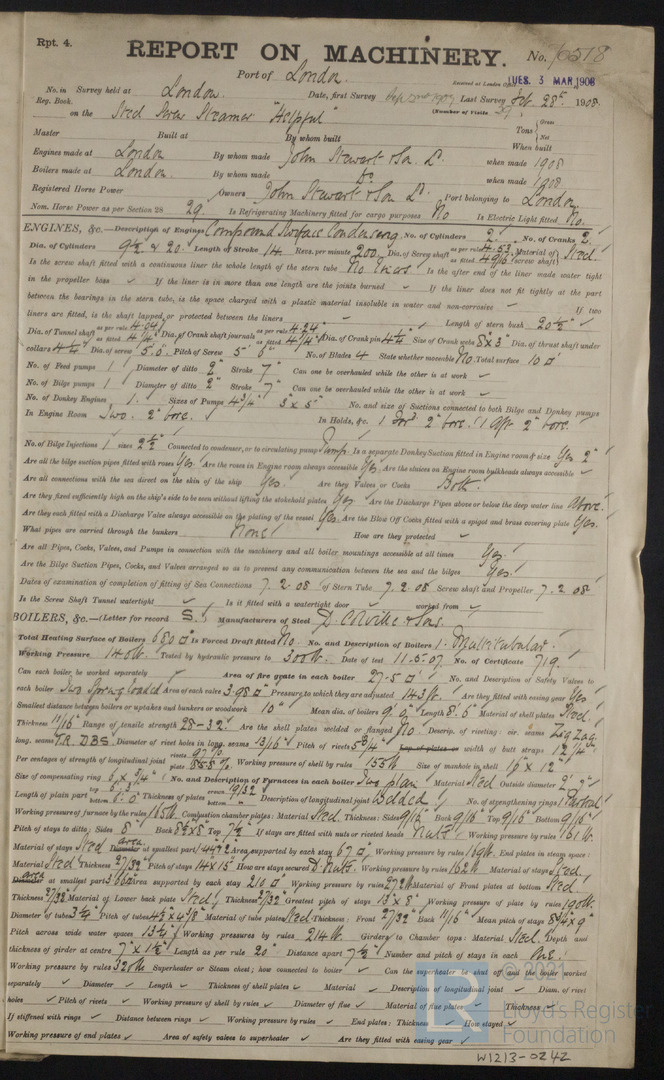 Rpt. 4.
REPORT ON MACHINERY.
No. 16518
Port of London.
Received at London Office TUES. 3 MAR 1908
No. in Survey held at London. Date, first Survey Last Survey Feb. 28th 1908.
Reg. Book. (Number of Visits
on the Steel Screw Steamer "Helpful" Tons { Gross Net
Master Built at By whom built When built
Engines made at London By whom made John Stewart & Son Ld. when made 1908
Boilers made at London. By whom made Do. when made 1908
Registered Horse Power Owners John Stewart & Son Ld. Port belonging to London
Nom. Horse Power as per Section 28 29. Is Refrigerating Machinery fitted for cargo purposes No Is Electric Light fitted No.
ENGINES, &c.—Description of Engines Compound Surface Condensing. No. of Cylinders 2. No. of Cranks 2.
Dia. of Cylinders 9½ & 20. Length of Stroke 14 Revs. per minute 200 Dia. of Screw shaft as per rule 4.53 as fitted Material of screw shaft Steel.
Is the screw shaft fitted with a continuous liner the whole length of the stern tube No Is the after end of the liner made water tight
in the propeller boss ✓ If the liner is in more than one length are the joints burned ✓ If the liner does not fit tightly at the part
between the bearings in the stern tube, is the space charged with a plastic material insoluble in water and non-corrosive ✓ If two
liners are fitted, is the shaft lapped or protected between the liners ✓ Length of stern bush 20½"
Dia. of Tunnel shaft as per rule 4.04 as fitted 4¼" Dia. of Crank shaft journals as per rule 4.24" as fitted 4¼" Dia. of Crank pin 4¼" Size of Crank webs 8" x 3" Dia. of thrust shaft under
collars 4¼" Dia. of screw 5'.0" Pitch of Screw 5' 6" No. of Blades 4 State whether moveable No. Total surface 10 □'
No. of Feed pumps 1 Diameter of ditto 2" Stroke 7" Can one be overhauled while the other is at work ✓
No. of Bilge pumps 1 Diameter of ditto 2" Stroke 7" Can one be overhauled while the other is at work ✓
No. of Donkey Engines 1. Sizes of Pumps 4¾" 3" x 5" No. and size of Suctions connected to both Bilge and Donkey pumps
In Engine Room Two. 2" bore. In Holds, &c. 1 Ford 2" bore. 1 Aft 2" bore.
No. of Bilge Injections 1 sizes 2½" Connected to condenser, or to circulating pump Pump. Is a separate Donkey Suction fitted in Engine room & size Yes 2"
Are all the bilge suction pipes fitted with roses Yes Are the roses in Engine room always accessible Yes. Are the sluices on Engine room bulkheads always accessible ✓
Are all connections with the sea direct on the skin of the ship Yes. Are they Valves or Cocks Both.
Are they fixed sufficiently high on the ship's side to be seen without lifting the stokehold plates Yes Are the Discharge Pipes above or below the deep water line Above.
Are they each fitted with a Discharge Valve always accessible on the plating of the vessel Yes. Are the Blow Off Cocks fitted with a spigot and brass covering plate Yes.
What pipes are carried through the bunkers None How are they protected ✓
Are all Pipes, Cocks, Valves, and Pumps in connection with the machinery and all boiler mountings accessible at all times Yes.
Are the Bilge Suction Pipes, Cocks, and Valves arranged so as to prevent any communication between the sea and the bilges Yes.
Dates of examination of completion of fitting of Sea Connections 7. 2. 08 of Stern Tube 7. 2. 08 Screw shaft and Propeller 7. 2. 08
Is the Screw Shaft Tunnel watertight ✓ Is it fitted with a watertight door ✓ worked from ✓
BOILERS, &c.—(Letter for record S.) Manufacturers of Steel D. Colville & Sons.
Total Heating Surface of Boilers 680 □ Is Forced Draft fitted No No. and Description of Boilers 1. Multitubular.
Working Pressure 140 lb. Tested by hydraulic pressure to 300 lb. Date of test 11.5.07 No. of Certificate 719.
Can each boiler be worked separately ✓ Area of fire grate in each boiler 27.5 □' No. and Description of Safety Valves to
each boiler Two Spring loaded Area of each valve 3.98 □" Pressure to which they are adjusted 143 lb. Are they fitted with easing gear Yes
Smallest distance between boilers or uptakes and bunkers or woodwork 10" Mean dia. of boilers 9' 0" Length 8' 6" Material of shell plates Steel
Thickness 11/16" Range of tensile strength 28-32 Are the shell plates welded or flanged No. Descrip. of riveting: cir. seams Zig Zag.
long. seams T.R. D.B.S. Diameter of rivet holes in long. seams 13/16" Pitch of rivets 5¾" Lap of plates or width of butt straps 12¼"
Per centages of strength of longitudinal joint rivets plate 85.8% Working pressure of shell by rules 155 lb Size of manhole in shell 16" x 12"
Size of compensating ring 6" x ¾" No. and Description of Furnaces in each boiler Two plain Material Steel Outside diameter 2' 9"
Length of plain part top bottom 6'.0" Thickness of plates crown bottom 19/32 Description of longitudinal joint Welded No. of strengthening rings
Working pressure of furnace by the rules 165 lb. Combustion chamber plates: Material Steel Thickness: Sides 9/16 Back 9/16 Top 9/16 Bottom 9/16
Pitch of stays to ditto: Sides 8" Back 8½ x 8" Top 7½ If stays are fitted with nuts or riveted heads Nuts Working pressure by rules 161 lb
Material of stays Steel Area at smallest part Area supported by each stay 67 □" Working pressure by rules 159 lb. End plates in steam space:
Material Steel Thickness 27/32 Pitch of stays 14" x 15" How are stays secured D. Nuts. Working pressure by rules 162 lb Material of stays Steel.
Area at smallest part Area supported by each stay 210 □" Working pressure by rules 272 lb Material of Front plates at bottom Steel
Thickness 27/32 Material of Lower back plate Steel Thickness 27/32 Greatest pitch of stays 13" x 8" Working pressure of plate by rules 190 lb.
Diameter of tubes 3¼ Pitch of tubes 4½" x 4⅜" Material of tube plates Steel Thickness: Front 27/32 Back 11/16" Mean pitch of stays 8¾" x 9"
Pitch across wide water spaces 13¼" Working pressures by rules 214 lb. Girders to Chamber tops: Material Steel. Depth and
thickness of girder at centre 7" x 1½" Length as per rule 20" Distance apart 7½" Number and pitch of stays in each One.
Working pressure by rules 320 lb Superheater or Steam chest; how connected to boiler ✓ Can the superheater be shut off and the boiler worked
separately ✓ Diameter ✓ Length ✓ Thickness of shell plates ✓ Material ✓ Description of longitudinal joint ✓ Diam. of rivet
holes ✓ Pitch of rivets ✓ Working pressure of shell by rules ✓ Diameter of flue ✓ Material of flue plates ✓ Thickness ✓
If stiffened with rings ✓ Distance between rings ✓ Working pressure by rules ✓ End plates: Thickness ✓ How stayed ✓
Working pressure of end plates ✓ Area of safety valves to superheater ✓ Are they fitted with easing gear ✓
© 2021
Lloyd's Register
Foundation
W1213-0242